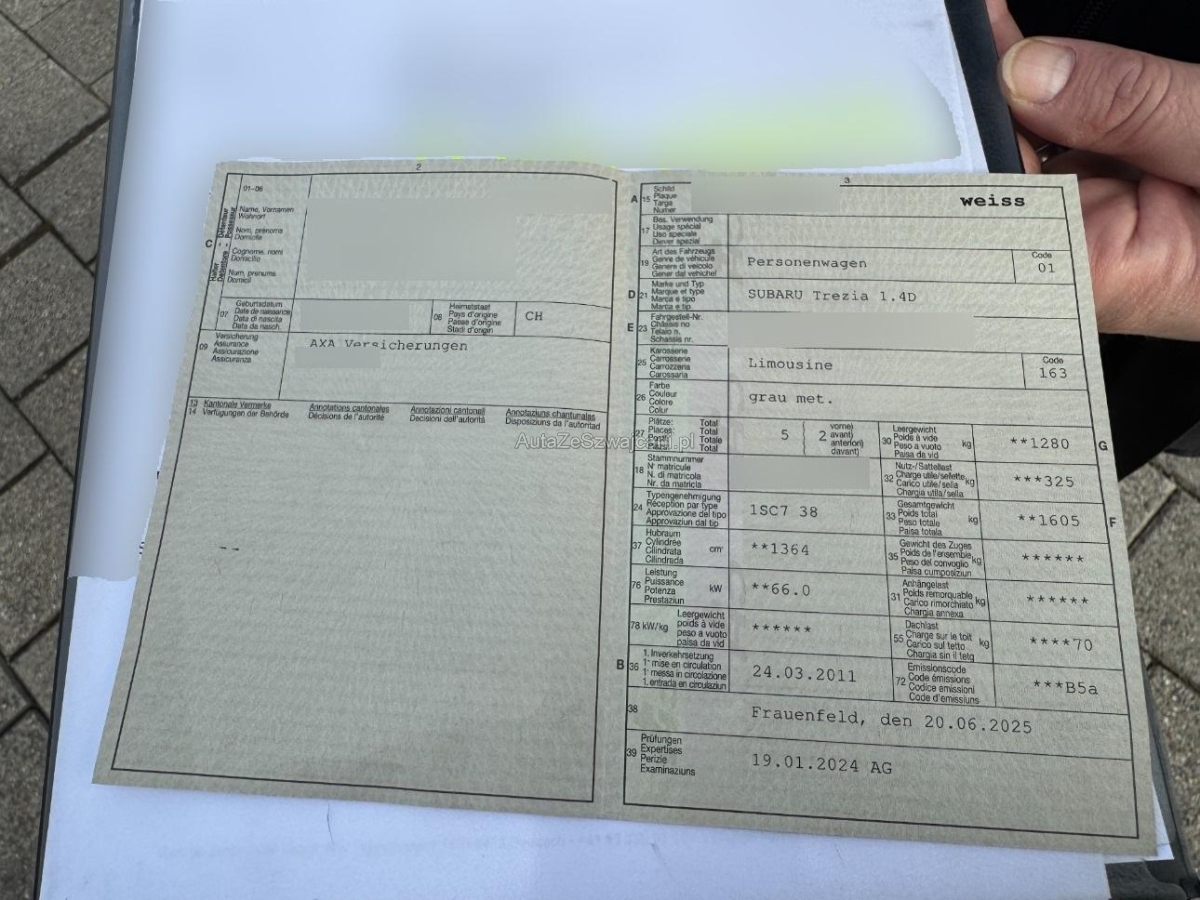 2
01-06
C
Halter
Détenteur
Detentore
Possessur
Name, Vornamen
Wohnort
Nom, prénoms
Domicile
Cognome, nomi
Domicilio
Num, prenums
Domicil
07
Geburtsdatum
Date de naissance
Data di nascita
Data da nasch.
08
Heimatstaat
Pays d'origine
Paese d'origine
Stadi d'origin
CH
09
Versicherung
Assurance
Assicurazione
Assicuranza
AXA Versicherungen
13
14
Kantonale Vermerke
Verfügungen der Behörde
Annotations cantonales
Décisions de l'autorité
Annotazioni cantonali
Decisioni dell'autorità
Annotaziuns chantunalas
Disposiziuns da l'autoritad
AutaZeSzwajcarii.pl
3
A 15
Schild
Plaque
Targa
Numer
weiss
17
Bes. Verwendung
Usage spécial
Uso speciale
Diever spezial
19
Art des Fahrzeugs
Genre de véhicule
Genere di veicolo
Gener dal vehichel
Personenwagen
Code
01
D 21
Marke und Typ
Marque et type
Marca e tipo
Marca e tip
SUBARU Trezia 1.4D
E 23
Fahrgestell-Nr.
Châssis no
Telaio n.
Schassis nr.
25
Karosserie
Carrosserie
Carrozzeria
Carossaria
Limousine
Code
163
26
Farbe
Couleur
Colore
Colur
grau met.
27
Plätze: Total
Places: Total
Posti: Totale
Total
5
2
vorne)
avant)
anteriori)
davant)
30
Leergewicht
Poids à vide
Peso a vuoto
Paisa da vid
kg
**1280
G
18
Stammnummer
N° matricule
N. di matricola
Nr. da matricla
32
Nutz-/Sattellast
Charge utile/sellette
Carico utile/sella
Chargia utila/sella
kg
***325
24
Typengenehmigung
Réception par type
Approvazione del tipo
Approvaziun dal tip
1SC7 38
33
Gesamtgewicht
Poids total
Peso totale
Paisa totala
kg
**1605
F
37
Hubraum
Cylindrée
Cilindrata
Cilindrada
cm³
**1364
35
Gewicht des Zuges
Poids de l'ensemble
Peso del convoglio
Paisa cumposiziun
kg
******
76
Leistung
Puissance
Potenza
Prestaziun
kW
**66.0
31
Anhängelast
Poids remorquable
Carico rimorchiato
Chargia annexa
kg
******
78 kW/kg
Leergewicht
poids à vide
peso a vuoto
paisa da vid
******
55
Dachlast
Charge sur le toit
Carico sul tetto
Chargia sin il tetg
kg
****70
B 36
1. Inverkehrsetzung
1re mise en circulation
1a messa in circolazione
1. entrada en circulaziun
24.03.2011
72
Emissionscode
Code émissions
Codice emissioni
Code d'emissiuns
***B5a
38
Frauenfeld, den 20.06.2025
39
Prüfungen
Expertises
Perizie
Examinaziuns
19.01.2024 AG